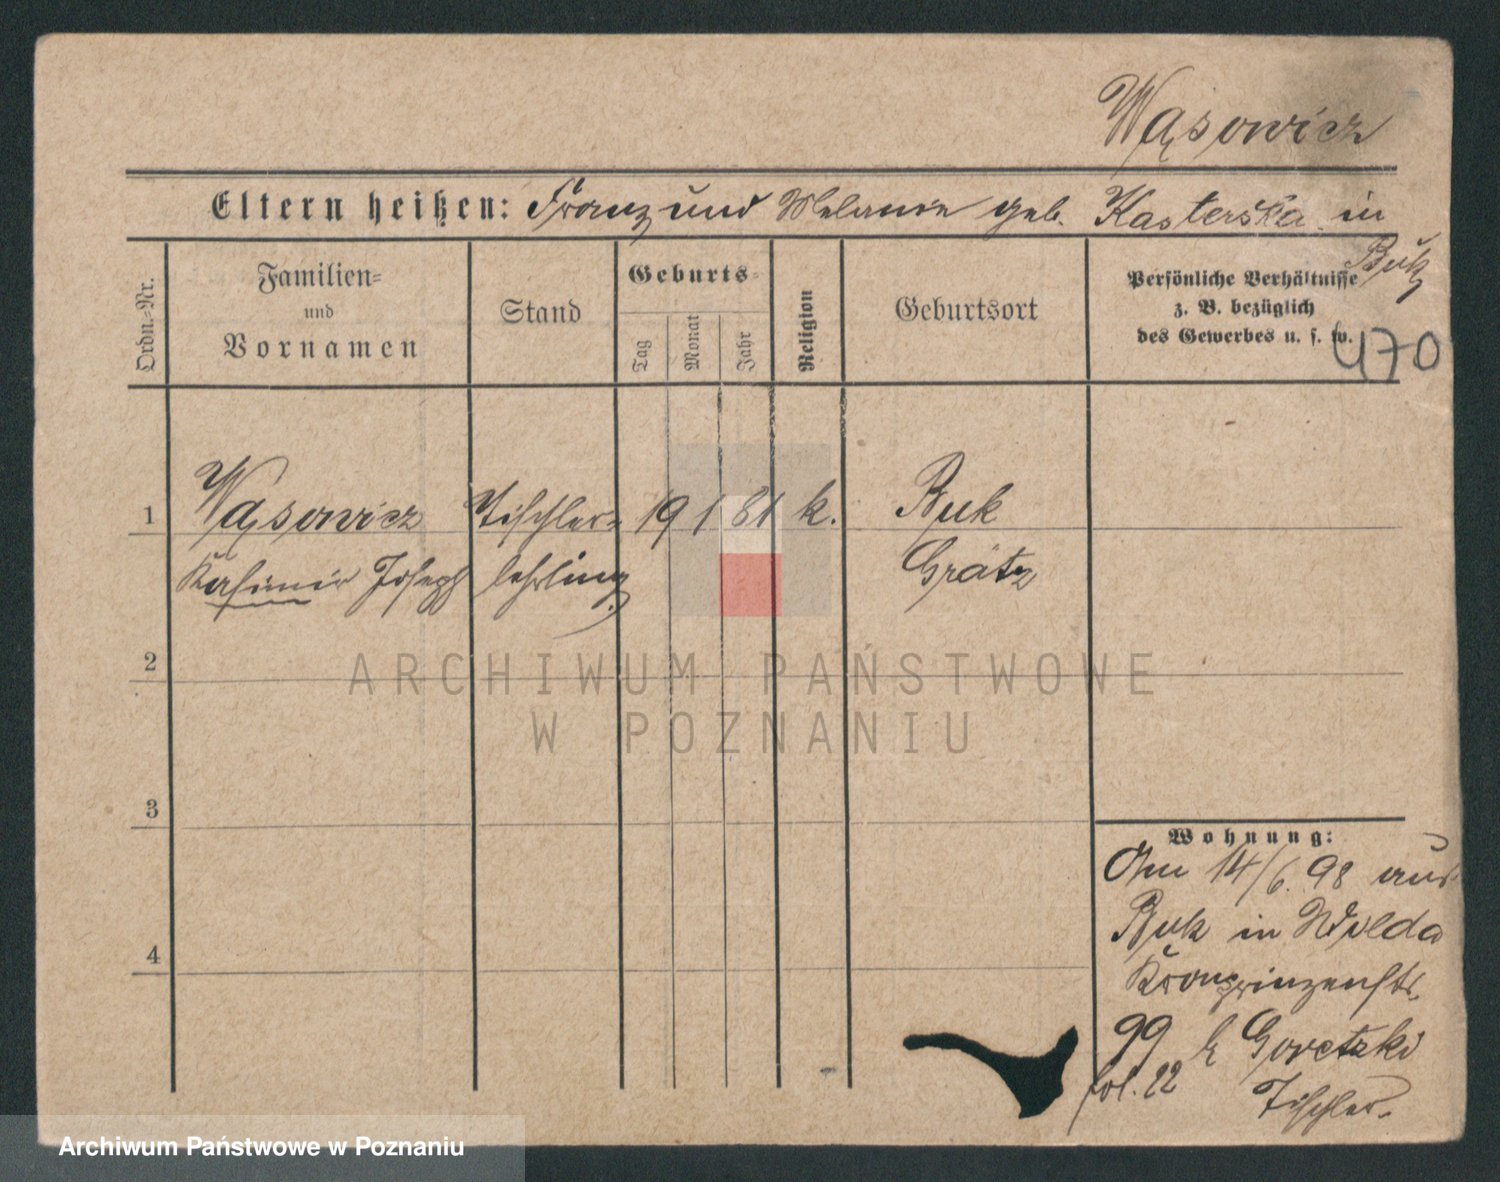 Wąsowicz
Eltern heißen: Franz und Melanie geb. Kasterska in
Buk
Ordn.-Nr.
Familien-
und
Vornamen
Stand
Geburts-
Tag
Monat
Jahr
Religion
Geburtsort
Persönliche Verhältnisse
z. B. bezüglich
des Gewerbes u. s. w.
470
1 Wąsowicz Tischler- 19 1 81 k. Buk
Kasimir Joseph lehrling Grätz
2
ARCHIWUM PAŃSTWOWE
W POZNANIU
3
4
Wohnung:
Am 14/6. 98 aus
Buk in Wilda
Kronprinzenstr.
99 b Goretzki
fol. 22 Tischler.
Archiwum Państwowe w Poznaniu